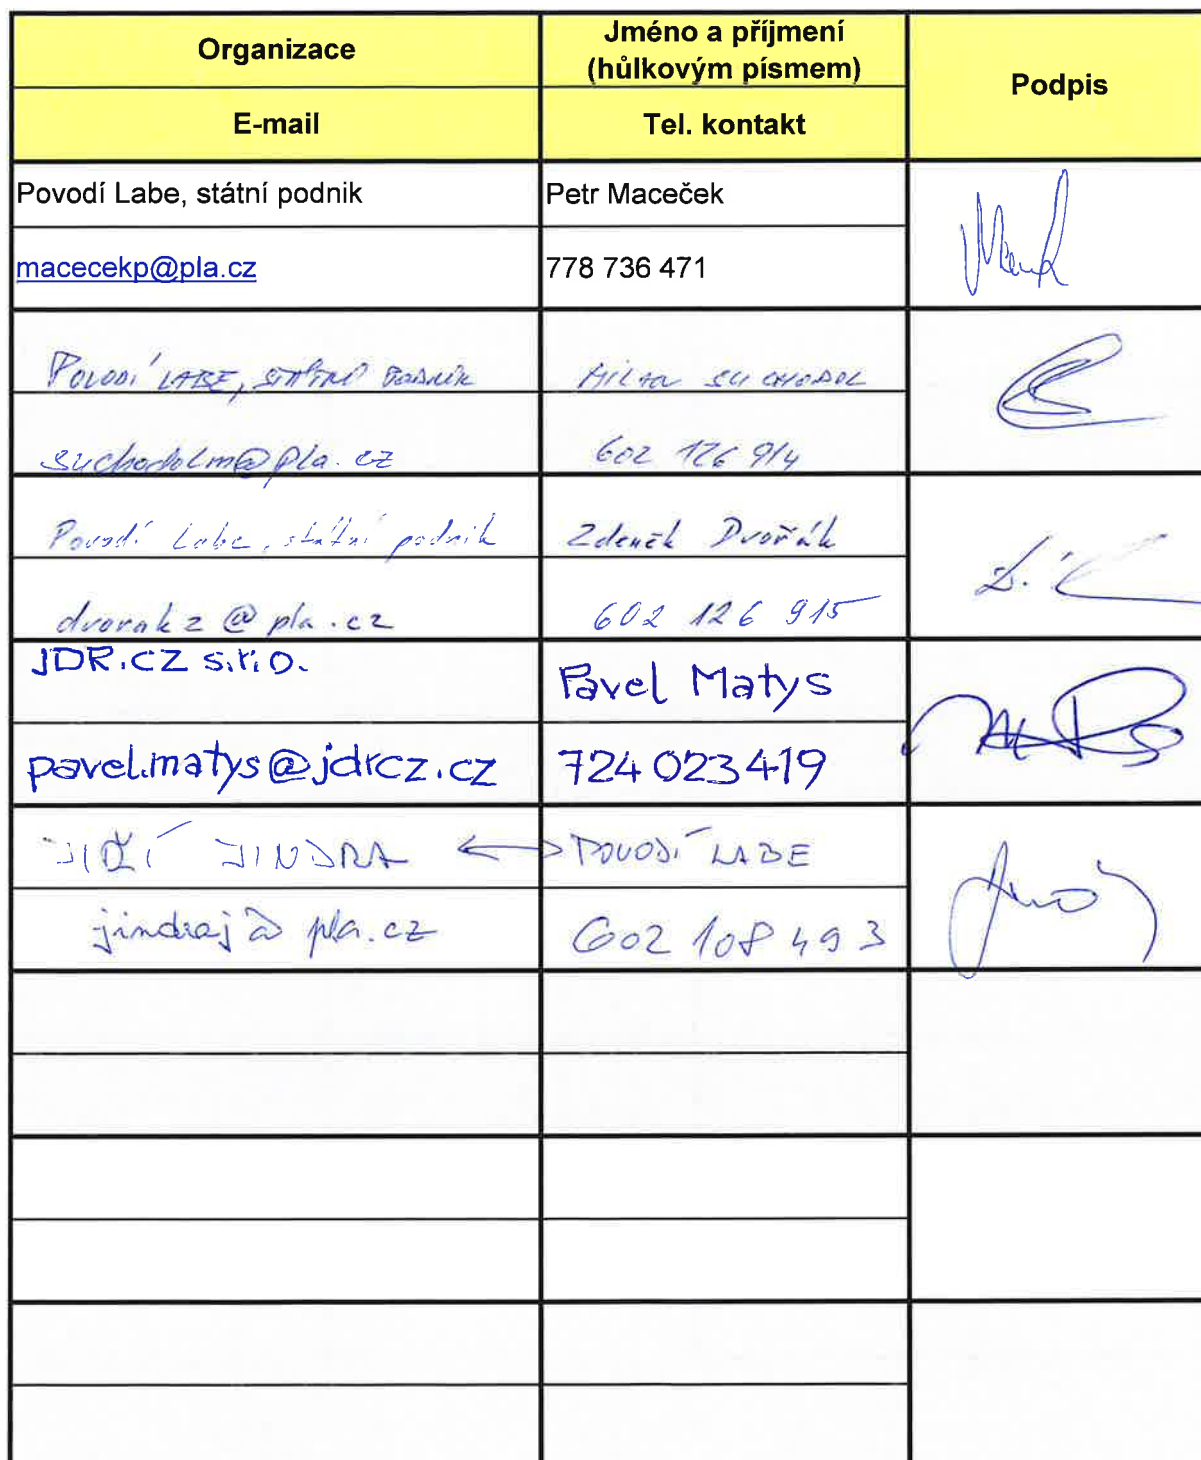 Organizace
Jméno a příjmení
(hůlkovým písmem)
Podpis
E-mail
Tel. kontakt
Povodí Labe, státní podnik
Petr Maceček
macecekp@pla.cz
778 736 471
POVODÍ LABE, STÁTNÍ PODNIK
MILAN SUCHODOL
suchodolm@pla.cz
602 126 914
Povodí Labe, státní podnik
Zdeněk Dvořák
dvorakz@pla.cz
602 126 915
JDR.CZ s.r.o.
Pavel Matys
pavel.matys@jdrcz.cz
724 023 419
JIŘÍ JINDRA ↔ POVODÍ LABE
jindraj@pla.cz
602 108 493